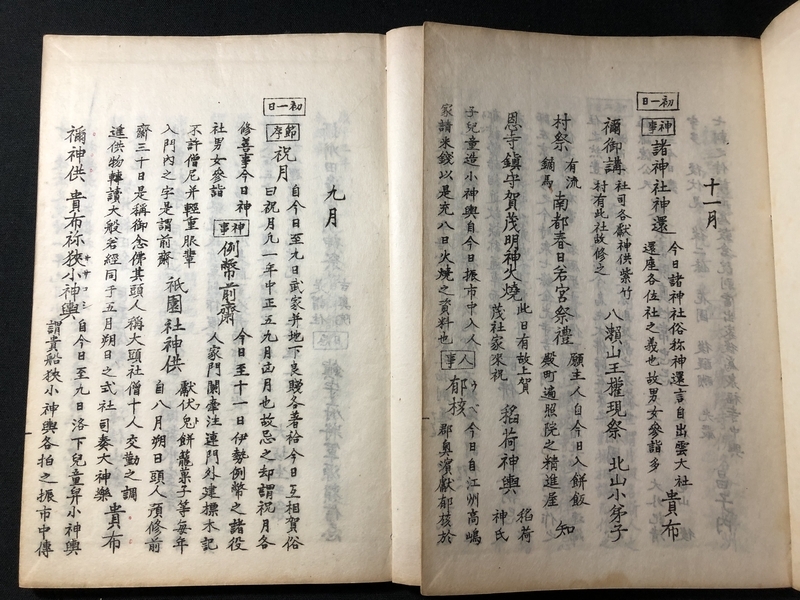 十一月
初一日
神事
諸神社神還
今日諸神社俗祢神還言自出雲大社
還座各位社之義也故男女參詣多
貴布
禰御講
社司各獻神供紫竹
村有此社故修之
八瀬山王權現祭
北山小弟子
村祭
有流
鏑馬
南都春日若宮祭禮
願主人自今日入餅飯
殿町遍照院之精進屋
知
恩寺鎮守賀茂明神火燒
此日有故上賀
茂社家來祝
稻荷神輿
稻荷
神氏
子兒童造小神輿自今日振市中入人
家請米錢以是充八日火燒之資料也
人事
郁核
今日自江州高嶋
郡奥濱獻郁核於
九月
初一日
節序
祝月
自今日至九日武家并地下良賤各著袷今日互相賀俗
曰祝月凡一年中正五九月凶月也故忌之却謂祝月各
修善事今日神
社男女參詣
神事
例幣前齋
今日至十一日伊勢例幣之諸役
人家門闌牽注連門外建標木記
不許僧尼并輕重服輩
入門内之字是謂前齋
祇園社神供
獻伏兔餅籠菓子等每年
自八月朔日頭人預修前
齋三十日是稱御念佛其頭人稱大頭社僧十人交勤之調
進供物轉讀大般若經同于五月朔日之式社司奏大神樂
貴布
禰神供
貴布祢狹小神輿
自今日至九日洛下兒童舁小神輿
謂貴船狹小神輿各拍之振市中傳